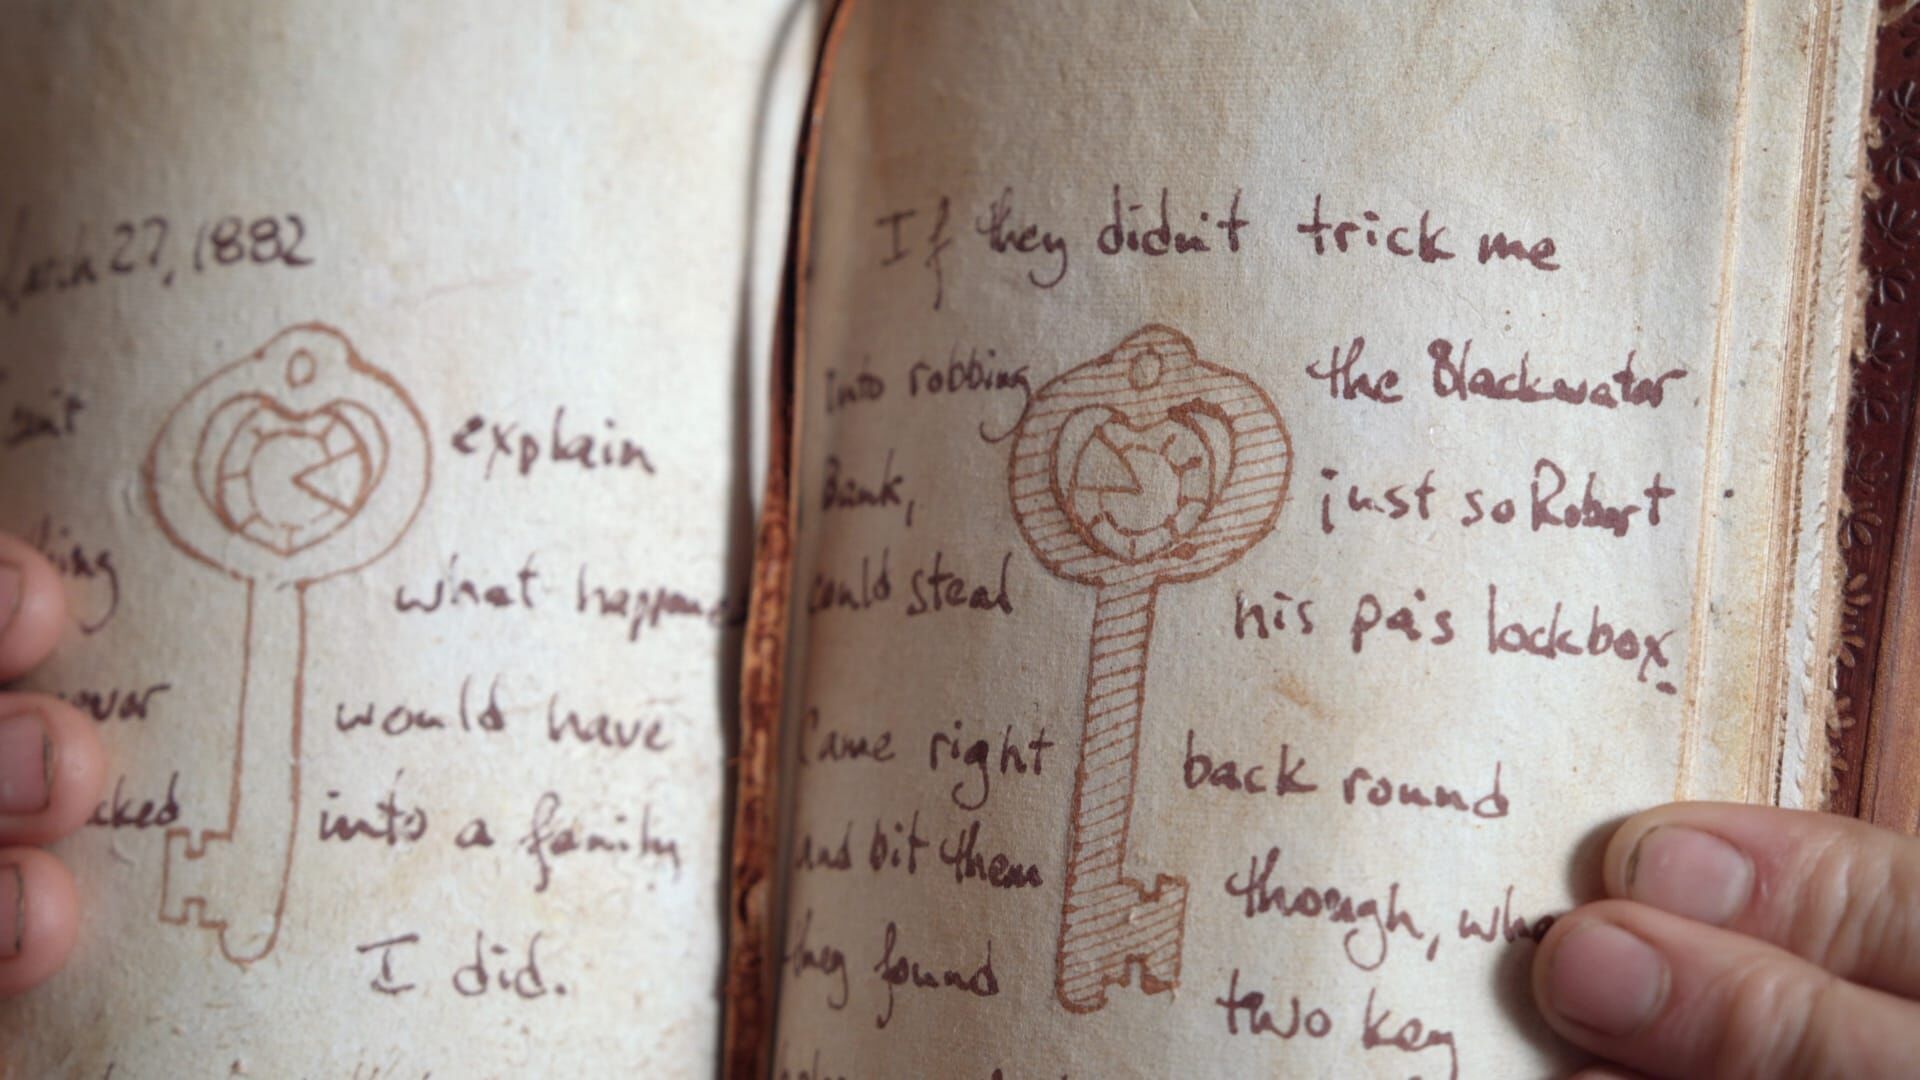 March 27, 1882
explain
what happened
would have
into a family
I did.
If they didn't trick me
into robbing the Blackwater
Bank, just so Robert
could steal his pa's lockbox.
Came right back round
and bit them though,
they found two key